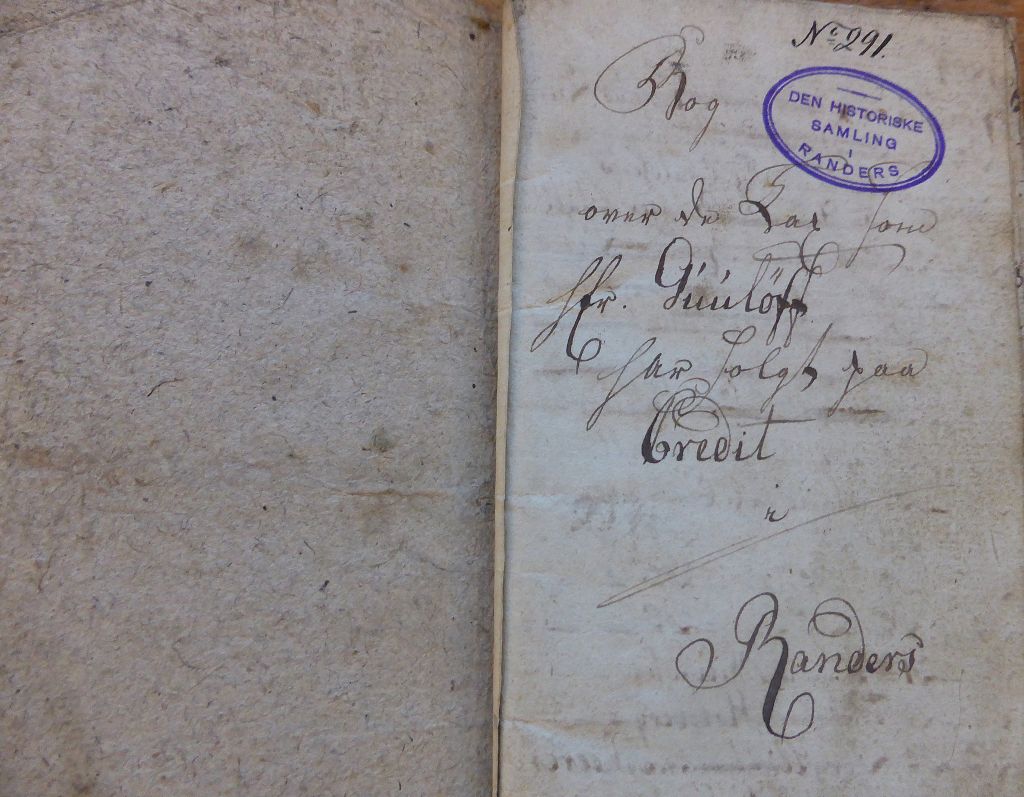 No 291.
Bog
DEN HISTORISKE
SAMLING
I
RANDERS
over de Lax som
Hr.
har solgt paa
Credit
i
Randers